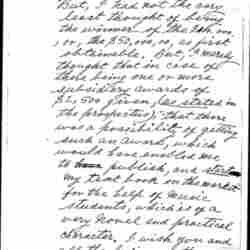 But, I had not the very
least thought of being
the winner of the
or, the $50,000.00, as first
obtainable. But, I
thought that in case of
there being one or more
subsidiary awards of
$2,500 given, (as stated in
the prospective), that there
was a possibility of getting
such an award, which
would have enabled me
to publish, and start
my text book on the market
for the help of music
students, which is of a
very novel and practical
character. I wish you and